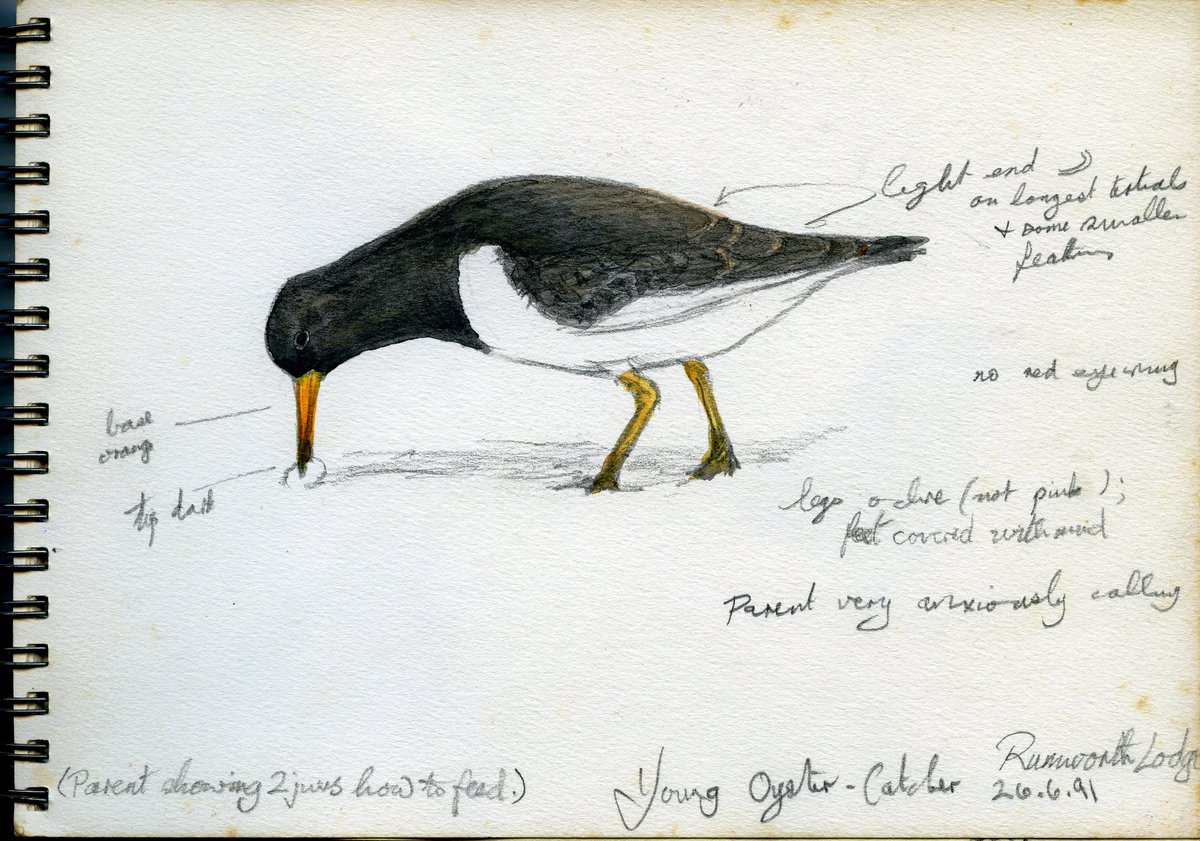 light end
on longest tertials
+ some smaller
feathers
no red eye-ring
base
orange
tip dark
legs olive (not pink);
feet covered with mud
Parent very anxiously calling
(Parent showing 2 juvs how to feed.)
Young Oyster-Catcher
Rumworth Lodge
26.6.91